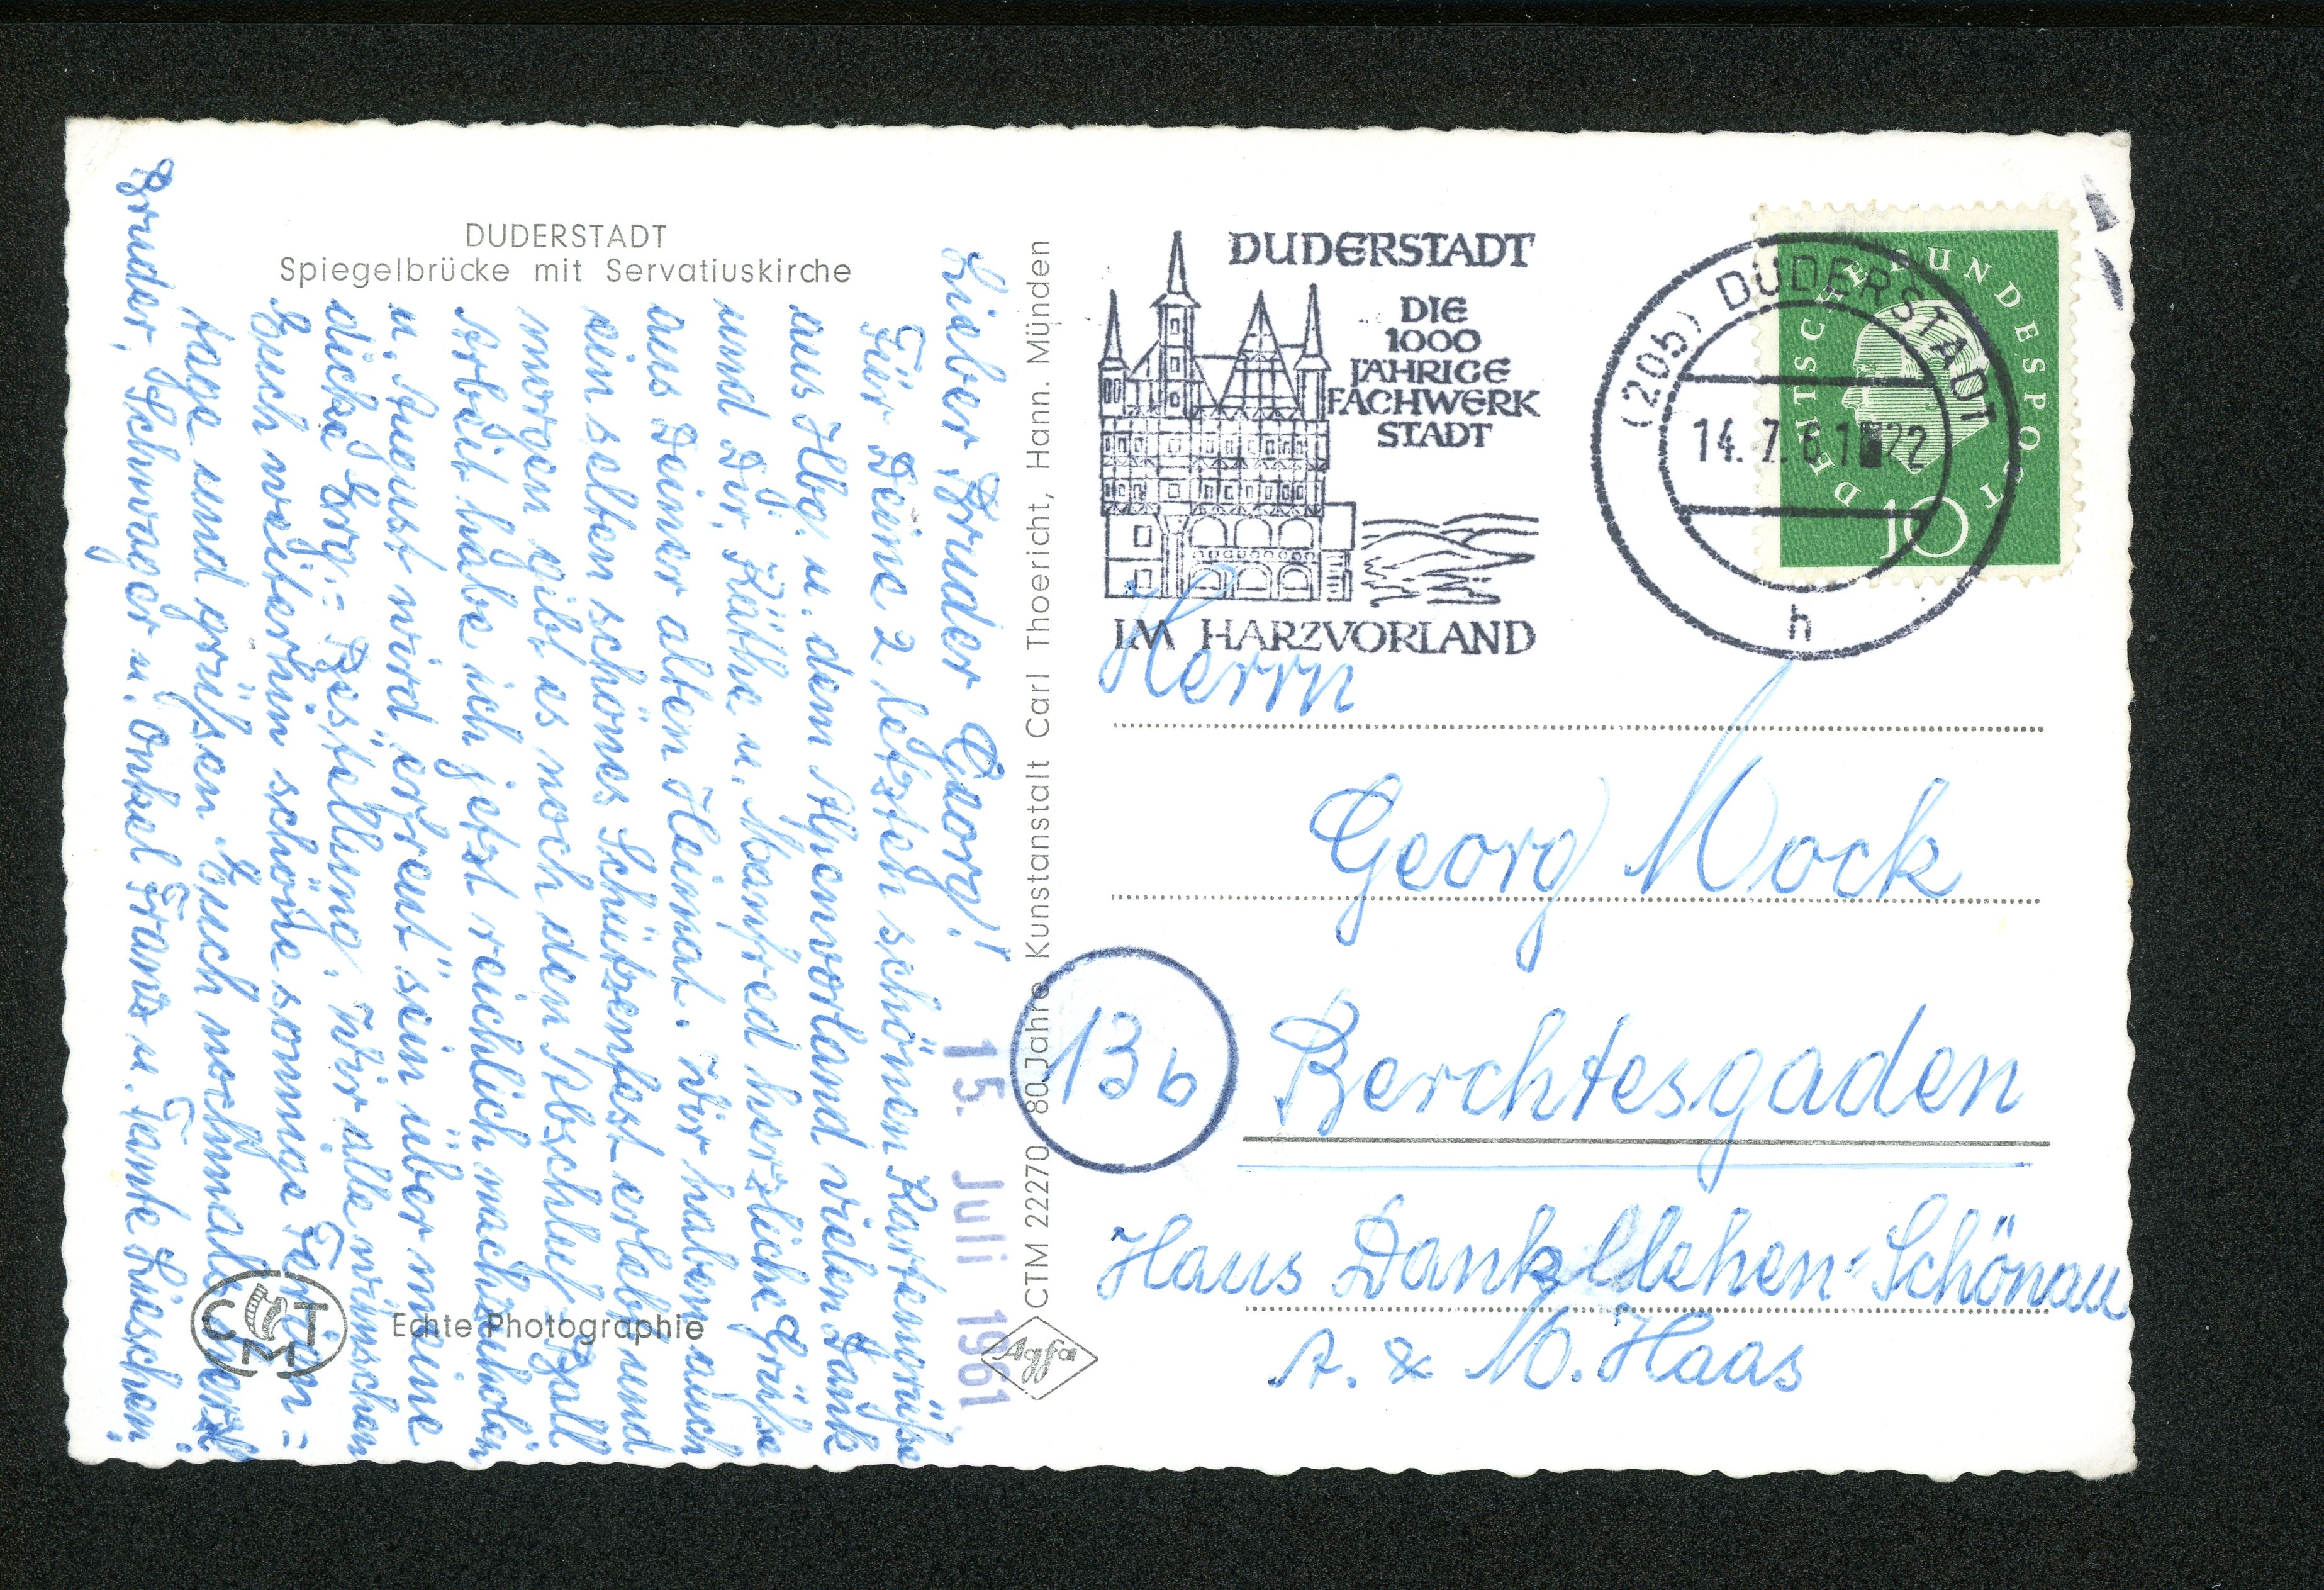 DUDERSTADT
Spiegelbrücke mit Servatiuskirche
Lieber Bruder Georg!
Für Deine 2 letzten schönen Kartengrüße
aus Hbg. u. dem Alpenvorland vielen Dank
und Dir, Käthe u. Manfred herzliche Grüße
aus Deiner alten Heimat. Wir haben auch
ein selten schönes Schützenfest erlebt und
morgen gibt es noch den Abschluß-Ball
Arbeit habe ich jetzt reichlich nachzuholen
u. August wird erfreut sein über meine
dicke Erg.-Bestellung. Wir alle wünschen
Euch weiterhin schöne sonnige Ferien=
tage und grüßen Euch nochmals herzl.
Bruder, Schwager u. Onkel Franz u. Tante Lieschen
CTM
Echte Photographie
15. Juli 1961
CTM 222270 80 Jahre Kunstanstalt Carl Thoericht, Hann. Münden
Agfa
DUDERSTADT
DIE
1000
JÄHRIGE
FACHWERK
STADT
IM HARZVORLAND
(20b) DUDERSTADT
14.7.61 22
h
DEUTSCHE BUNDESPOST
10
Herrn
Georg Mock
13b
Berchtesgaden
Haus Schönau
A. & M. Haas